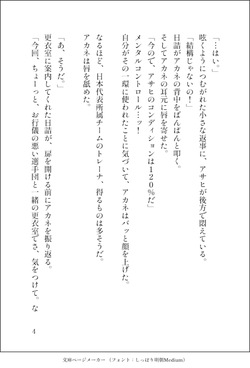 「…はい。」
呟くようにつむがれた小さな返事に、アサヒが後方で悶えている。
「結構じゃないの！」
日詰がアカネの背中をばんばんと叩く。
そしてアカネの耳元に唇を寄せた。
「今ので、アサヒのコンディションは120％だ」
メンタルコントロール…ッ！
自分がその一環に使われたことに気づいて、アカネはバッと顔を上げた。
なるほど、日本代表所属チームのトレーナー、得るものは多そうだ。
アカネは唇を舐めた。
「あ、そうだ。」
更衣室に案内してくれた日詰が、扉を開ける前にアカネを振り返る。
「今回、ちょーっと、お行儀の悪い選手団と一緒の更衣室でさ、気をつけて。な
4
文庫ページメーカー（フォント：しっぽり明朝Medium）